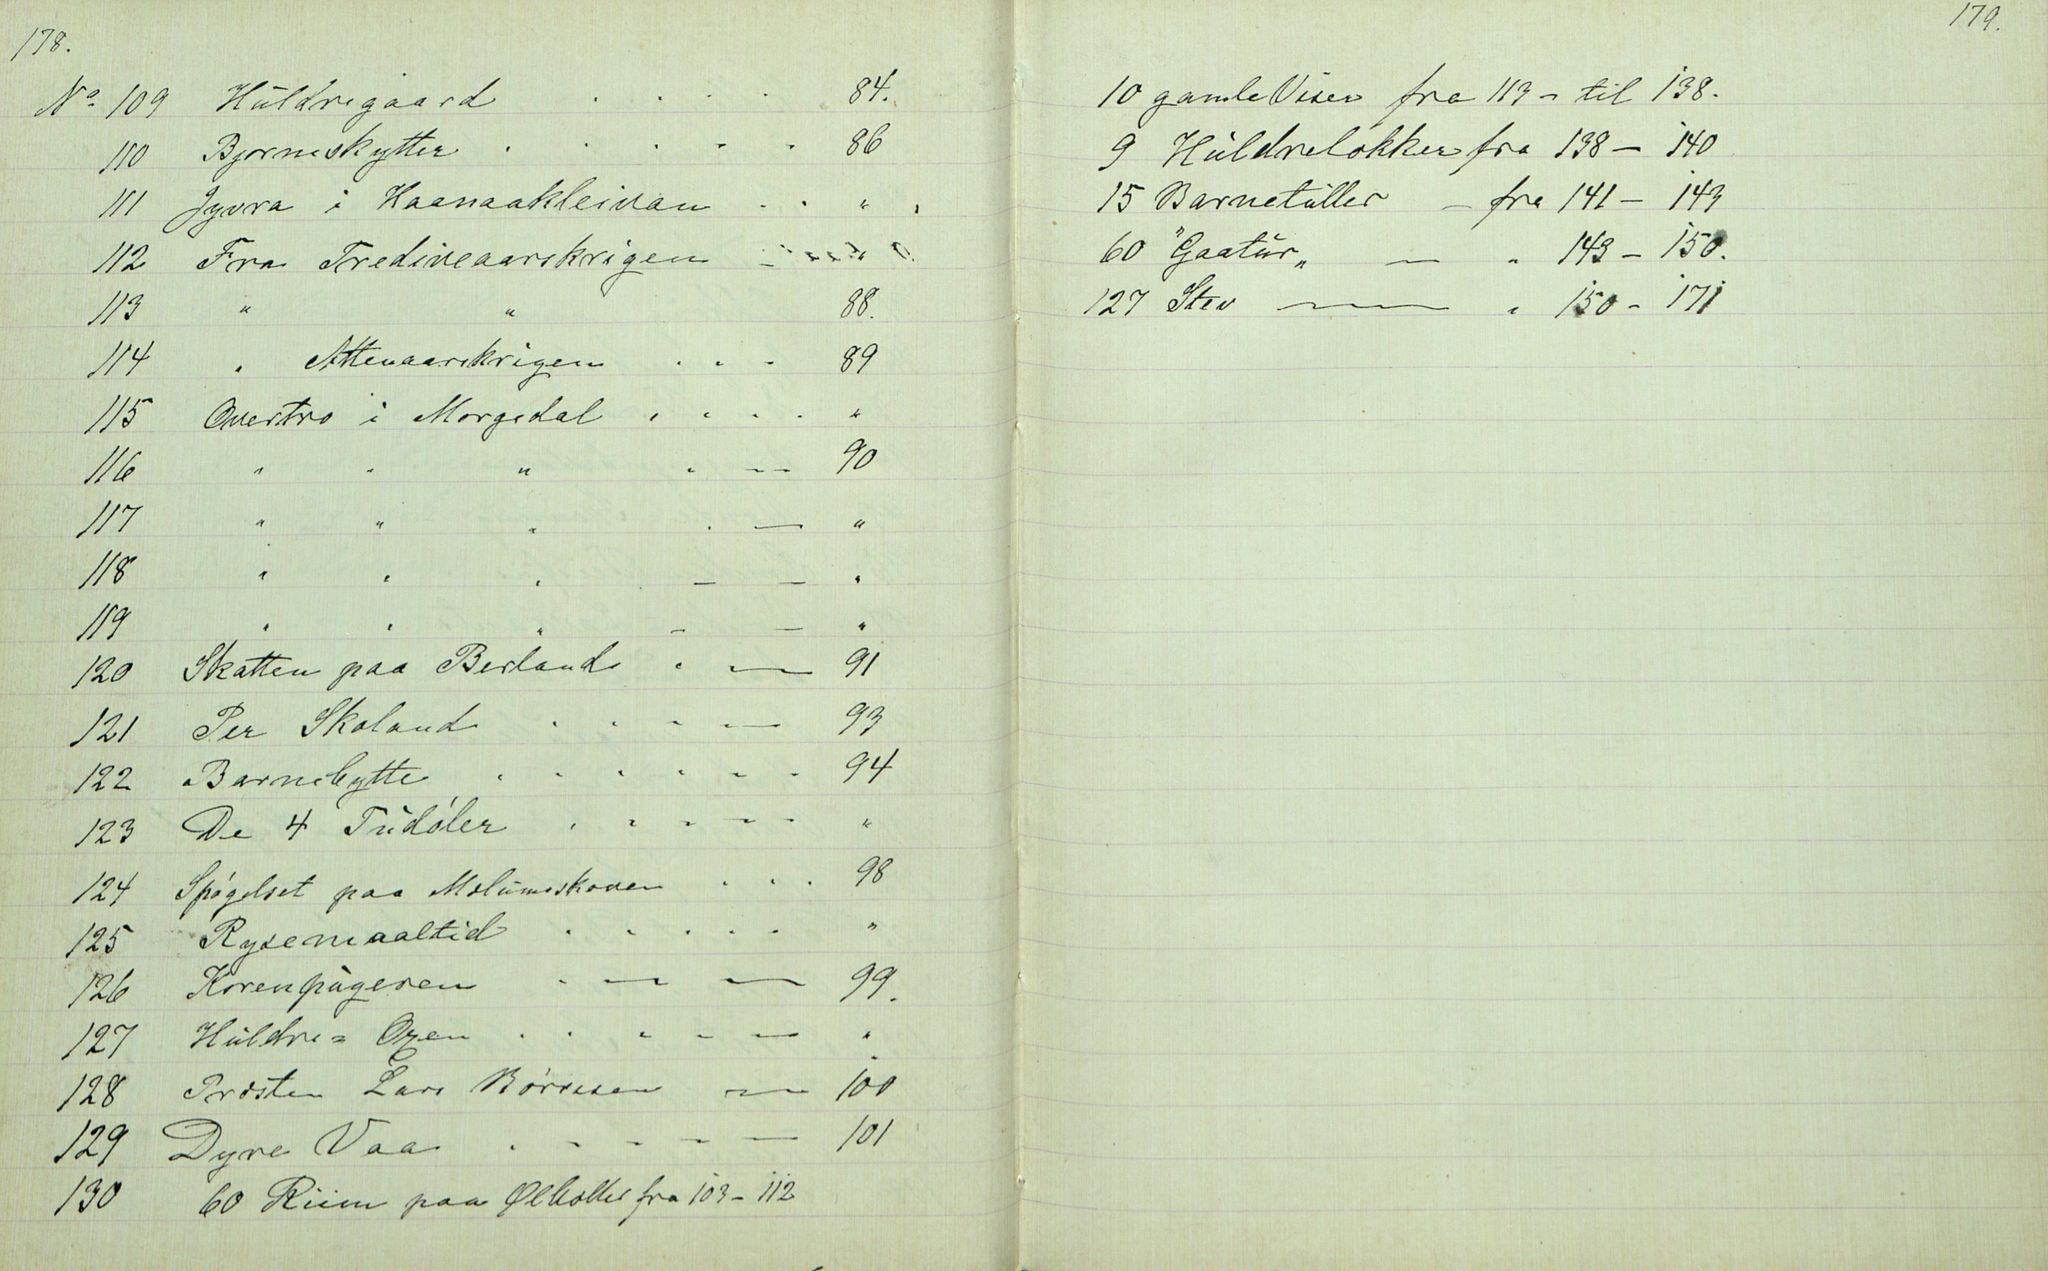 178.
No 109 Huldregaard . . . . 84.
110 Bjørneskytter . . . . . . 86
111 Jyvra i Haanaakleivan . . " .
112 Fra Trediveaarskrigen "
113 " " 88.
114 " Attenaarskrigen . . . 89
115 Overtro i Morgedal . . . . "
116 " " " . — 90
117 " " " . — "
118 " " " — — "
119 " " " — — "
120 Skatten paa Berland . — 91
121 Per Skoland . . . . — 93
122 Barnebytte . . . . . . 94
123 De 4 Tudøler . . . . . "
124 Spøgelset paa Molumskoven . . . 98
125 Rysemaaltid . . . . . "
126 . — — 99.
127 Huldre= Oxen . . . . . — "
128 Presten Lars Børresen — 100
129 Dyre Vaa . . . . — 101
130 60 Riim paa Ølboller fra 103 - 112
179.
10 gamle Viser fra 113 - til 138.
9 Huldrelokker fra 138 — 140
15 Barnetuller — fra 141 — 143
60 "Gaatur" — " 143 — 150.
127 Stev — " 150 - 171